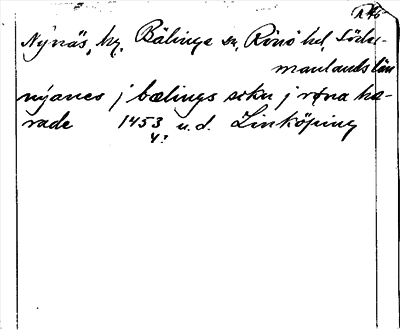 Nynäs, hg, Bälinge sn, Rönö hd, Söder-
manlands län
nýanes j bælings sokn j røna hæ-
rade 1453 u.d. Linköping
4?